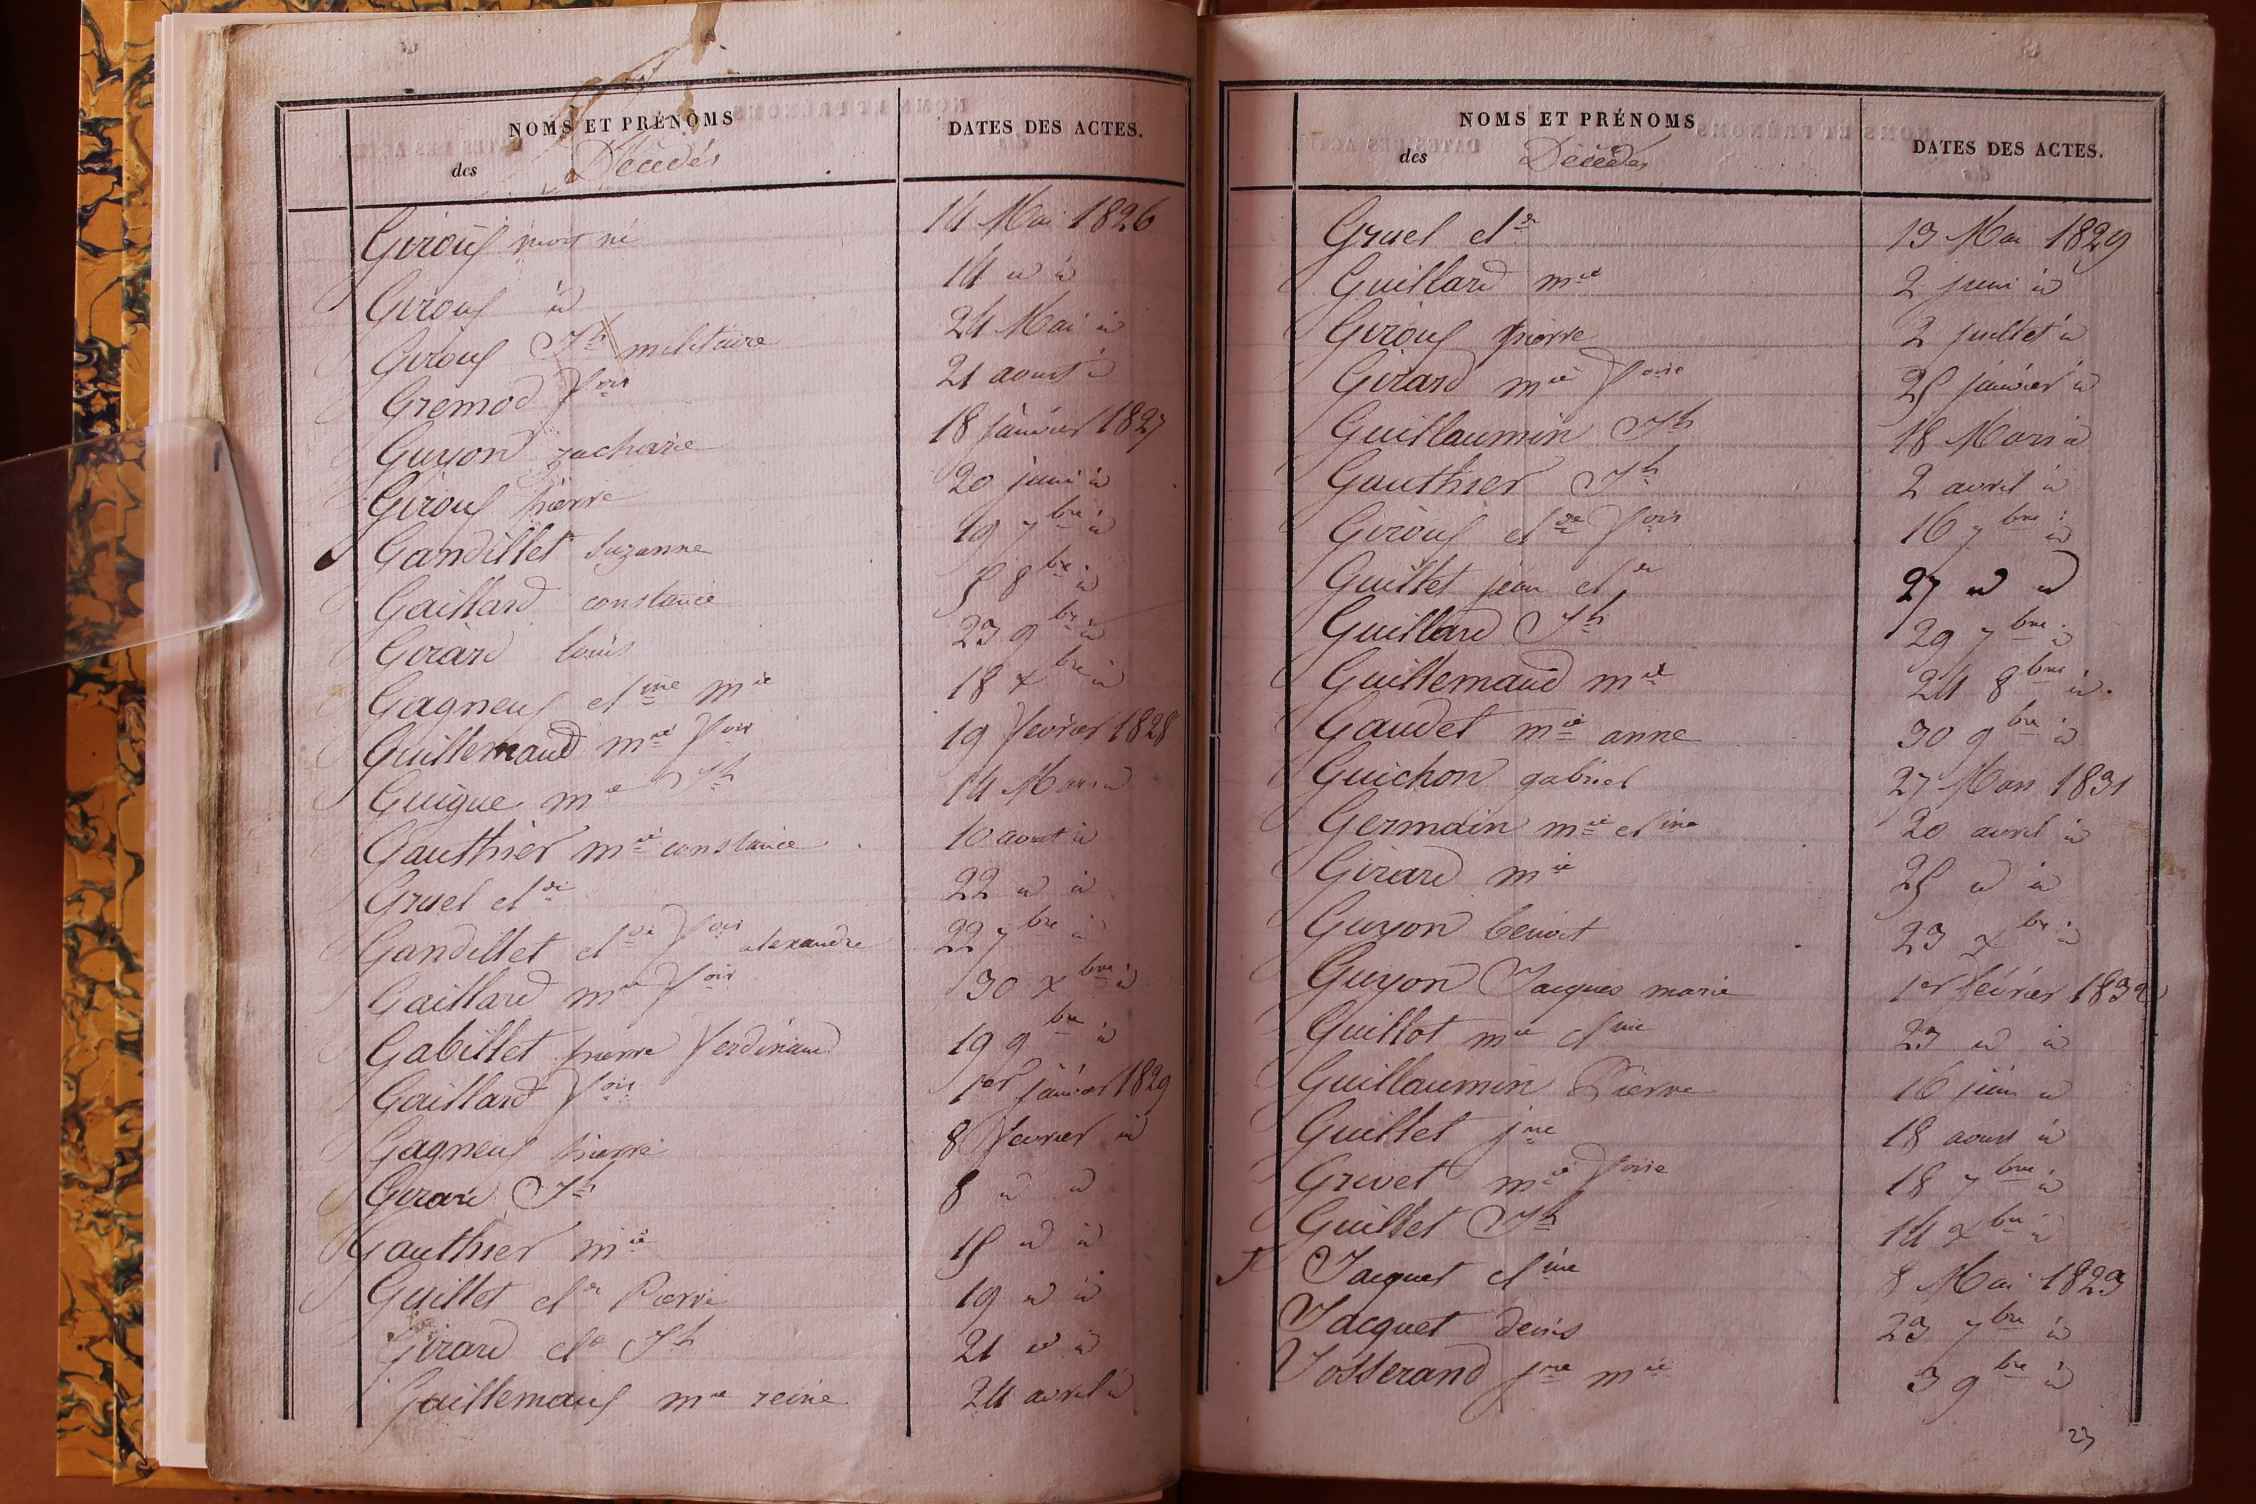 NOMS ET PRÉNOMS
des Décédés
DATES DES ACTES.
Girouf mort né 14 Mai 1826
Girouf id 14 id id
Girouf Jh militaire 24 Mai id
Gremod fois 21 aoust id
Guyon zacharie 18 janvier 1827
Girouf pierre 20 juin id
Gandillet suzanne 19 7bre id
Gaillard constance 5 8bre id
Girard louis 23 9bre id
Gagneux cline mie 18 xbre id
Guillemaud mie fois 19 fevrier 1828
Guigue mie Jh 14 Mars id
Gauthier mie constance 10 aout id
Gruel clde 22 id id
Gandillet clde fois alexandre 22 7bre id
Gaillard mie fois 30 xbre id
Gabillet pierre ferdinand 19 9bre id
Gaillard fois 1er janvier 1829
Gagneux pierre 8 fevrier id
Girard Jh 8 id id
Gauthier mie 15 id id
Guillot clde Pierre 19 id id
Girard clde Jh 21 id id
Guillemauf mie reine 24 avril id
NOMS ET PRÉNOMS
des Décédés
DATES DES ACTES.
Gruel clde 13 Mai 1829
Guillard mie 2 juin id
Girouf pierre 2 juillet id
Girard mie foise 25 janvier id
Guillaumin Jh 18 Mars id
Gauthier Jh 2 avril id
Girouf clde fois 16 7bre id
Guillet jean clde 27 id id
Guillard Jh 29 7bre id
Guillemaud mie 24 8bre id
Gaudet mie anne 30 9bre id
Guichon gabriel 27 Mars 1831
Germain mie cline 20 avril id
Girard mie 25 id id
Guyon benoit 23 xbre id
Guyon Jacques marie 1er février 1832
Guillot mie cline 23 id id
Guillaumin Pierre 16 juin id
Guillet jne 18 aoust id
Grivet mie foise 18 7bre id
Guillet Jh 14 xbre id
J Jacquet cline 8 Mai 1823
Jacquet denis 23 7bre id
Josserand jne mie 3 9bre id
23